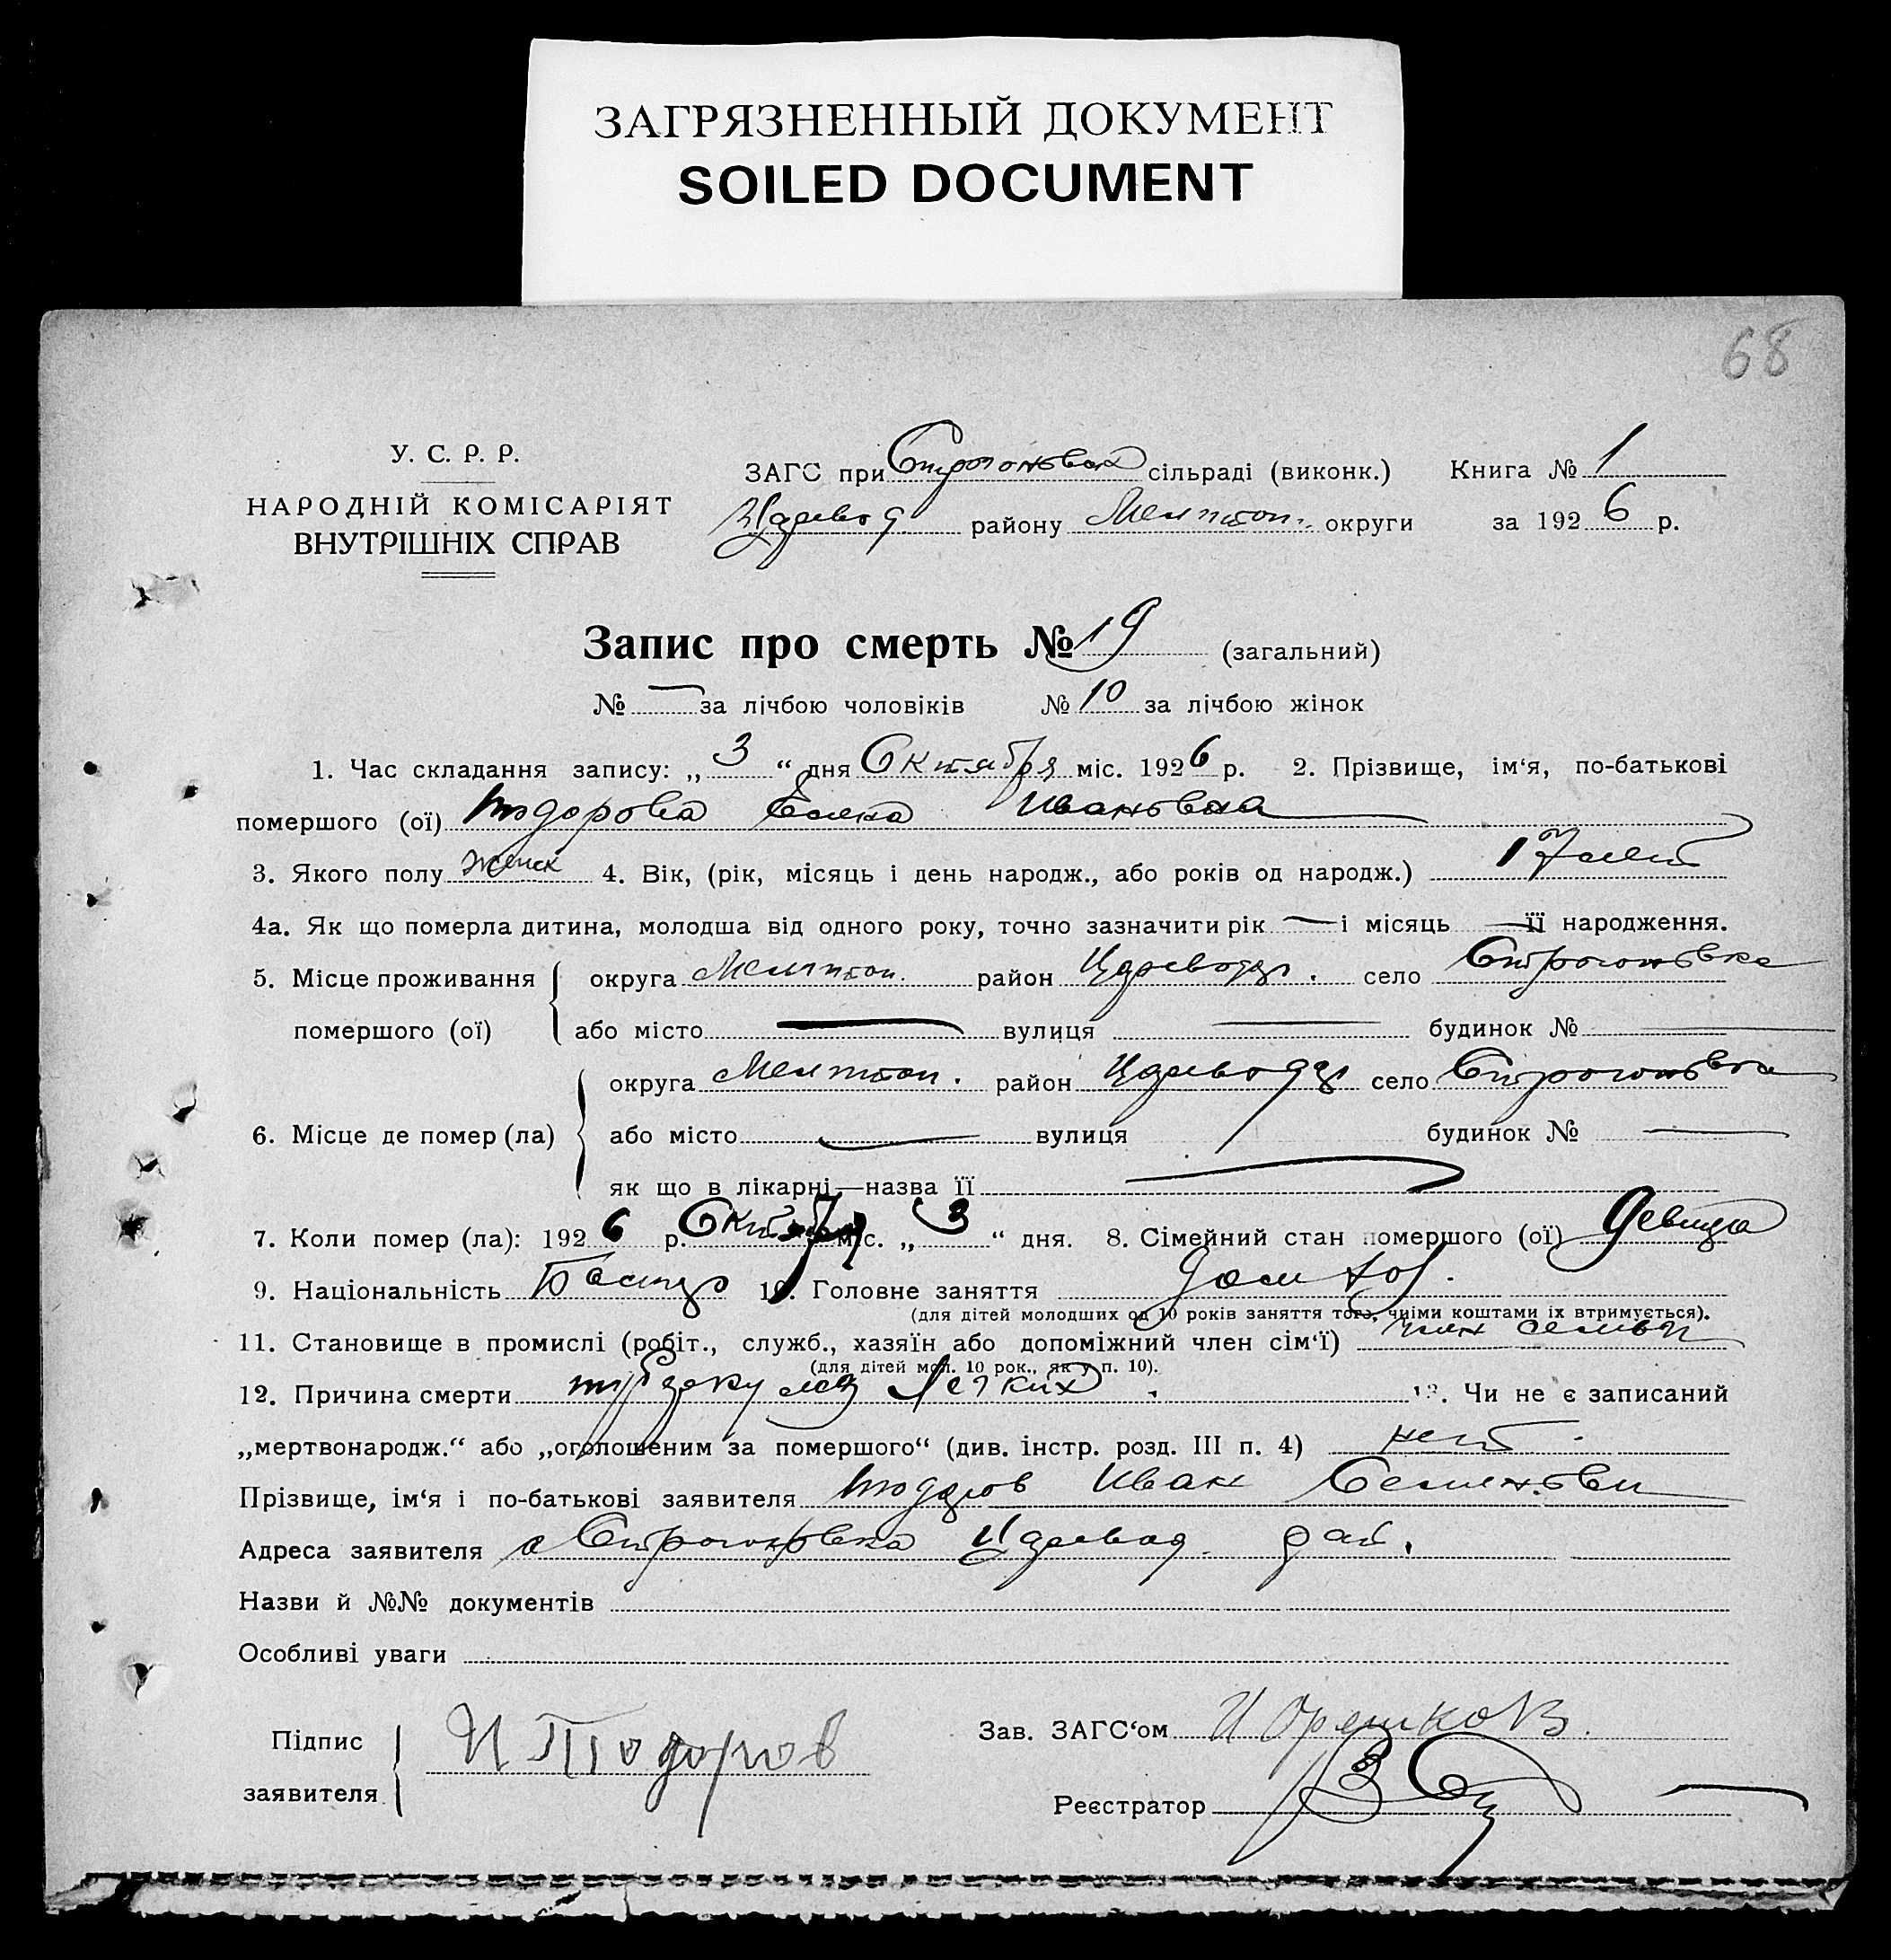 ЗАГРЯЗНЕННЫЙ ДОКУМЕНТ
SOILED DOCUMENT
68
У. С. Р. Р.
НАРОДНІЙ КОМІСАРІЯТ
ВНУТРІШНІХ СПРАВ
ЗАГС при сільраді (виконк.) Книга № 1
району Мелитоп. округи за 1926 р.
Запис про смерть № 19 (загальний)
№ — за лічбою чоловіків № 10 за лічбою жінок
1. Час складання запису: „ 3 “ дня Октября міс. 1926 р. 2. Прізвище, ім‘я, по-батькові
помершого (ої) Тодорова Ивановна
3. Якого полу женск 4. Вік, (рік, місяць і день народж., або років од народж.) 17 лет
4а. Як що померла дитина, молодша від одного року, точно зазначити рік — і місяць — її народження.
5. Місце проживання помершого (ої) { округа Мелитоп. район Царевод. село Строгоновка
або місто — вулиця — будинок № —
6. Місце де помер (ла) { округа Мелитоп. район Царевод село Строгоновка
або місто — вулиця будинок № —
як що в лікарні—назва її —
7. Коли помер (ла): 1926 р. Октября міс. „ 3 “ дня. 8. Сімейний стан помершого (ої) девица
9. Національність 10. Головне заняття
(для дітей молодших од 10 років заняття того, чиїми коштами їх втримується).
11. Становище в промислі (робіт., служб., хазяїн або допоміжний член сім‘ї) член семьи
(для дітей мол. 10 рок., як у п. 10).
12. Причина смерти Легких . 13. Чи не є записаний
„мертвонародж.“ або „оголошеним за помершого“ (див. інстр. розд. III п. 4) нет .
Прізвище, ім‘я і по-батькові заявителя Тодоров Иван
Адреса заявителя с Строгоновка Царевод. рай.
Назви й №№ документів
Особливі уваги
Підпис заявителя { И Тодоров
Зав. ЗАГС‘ом И Орешков.
Реєстратор